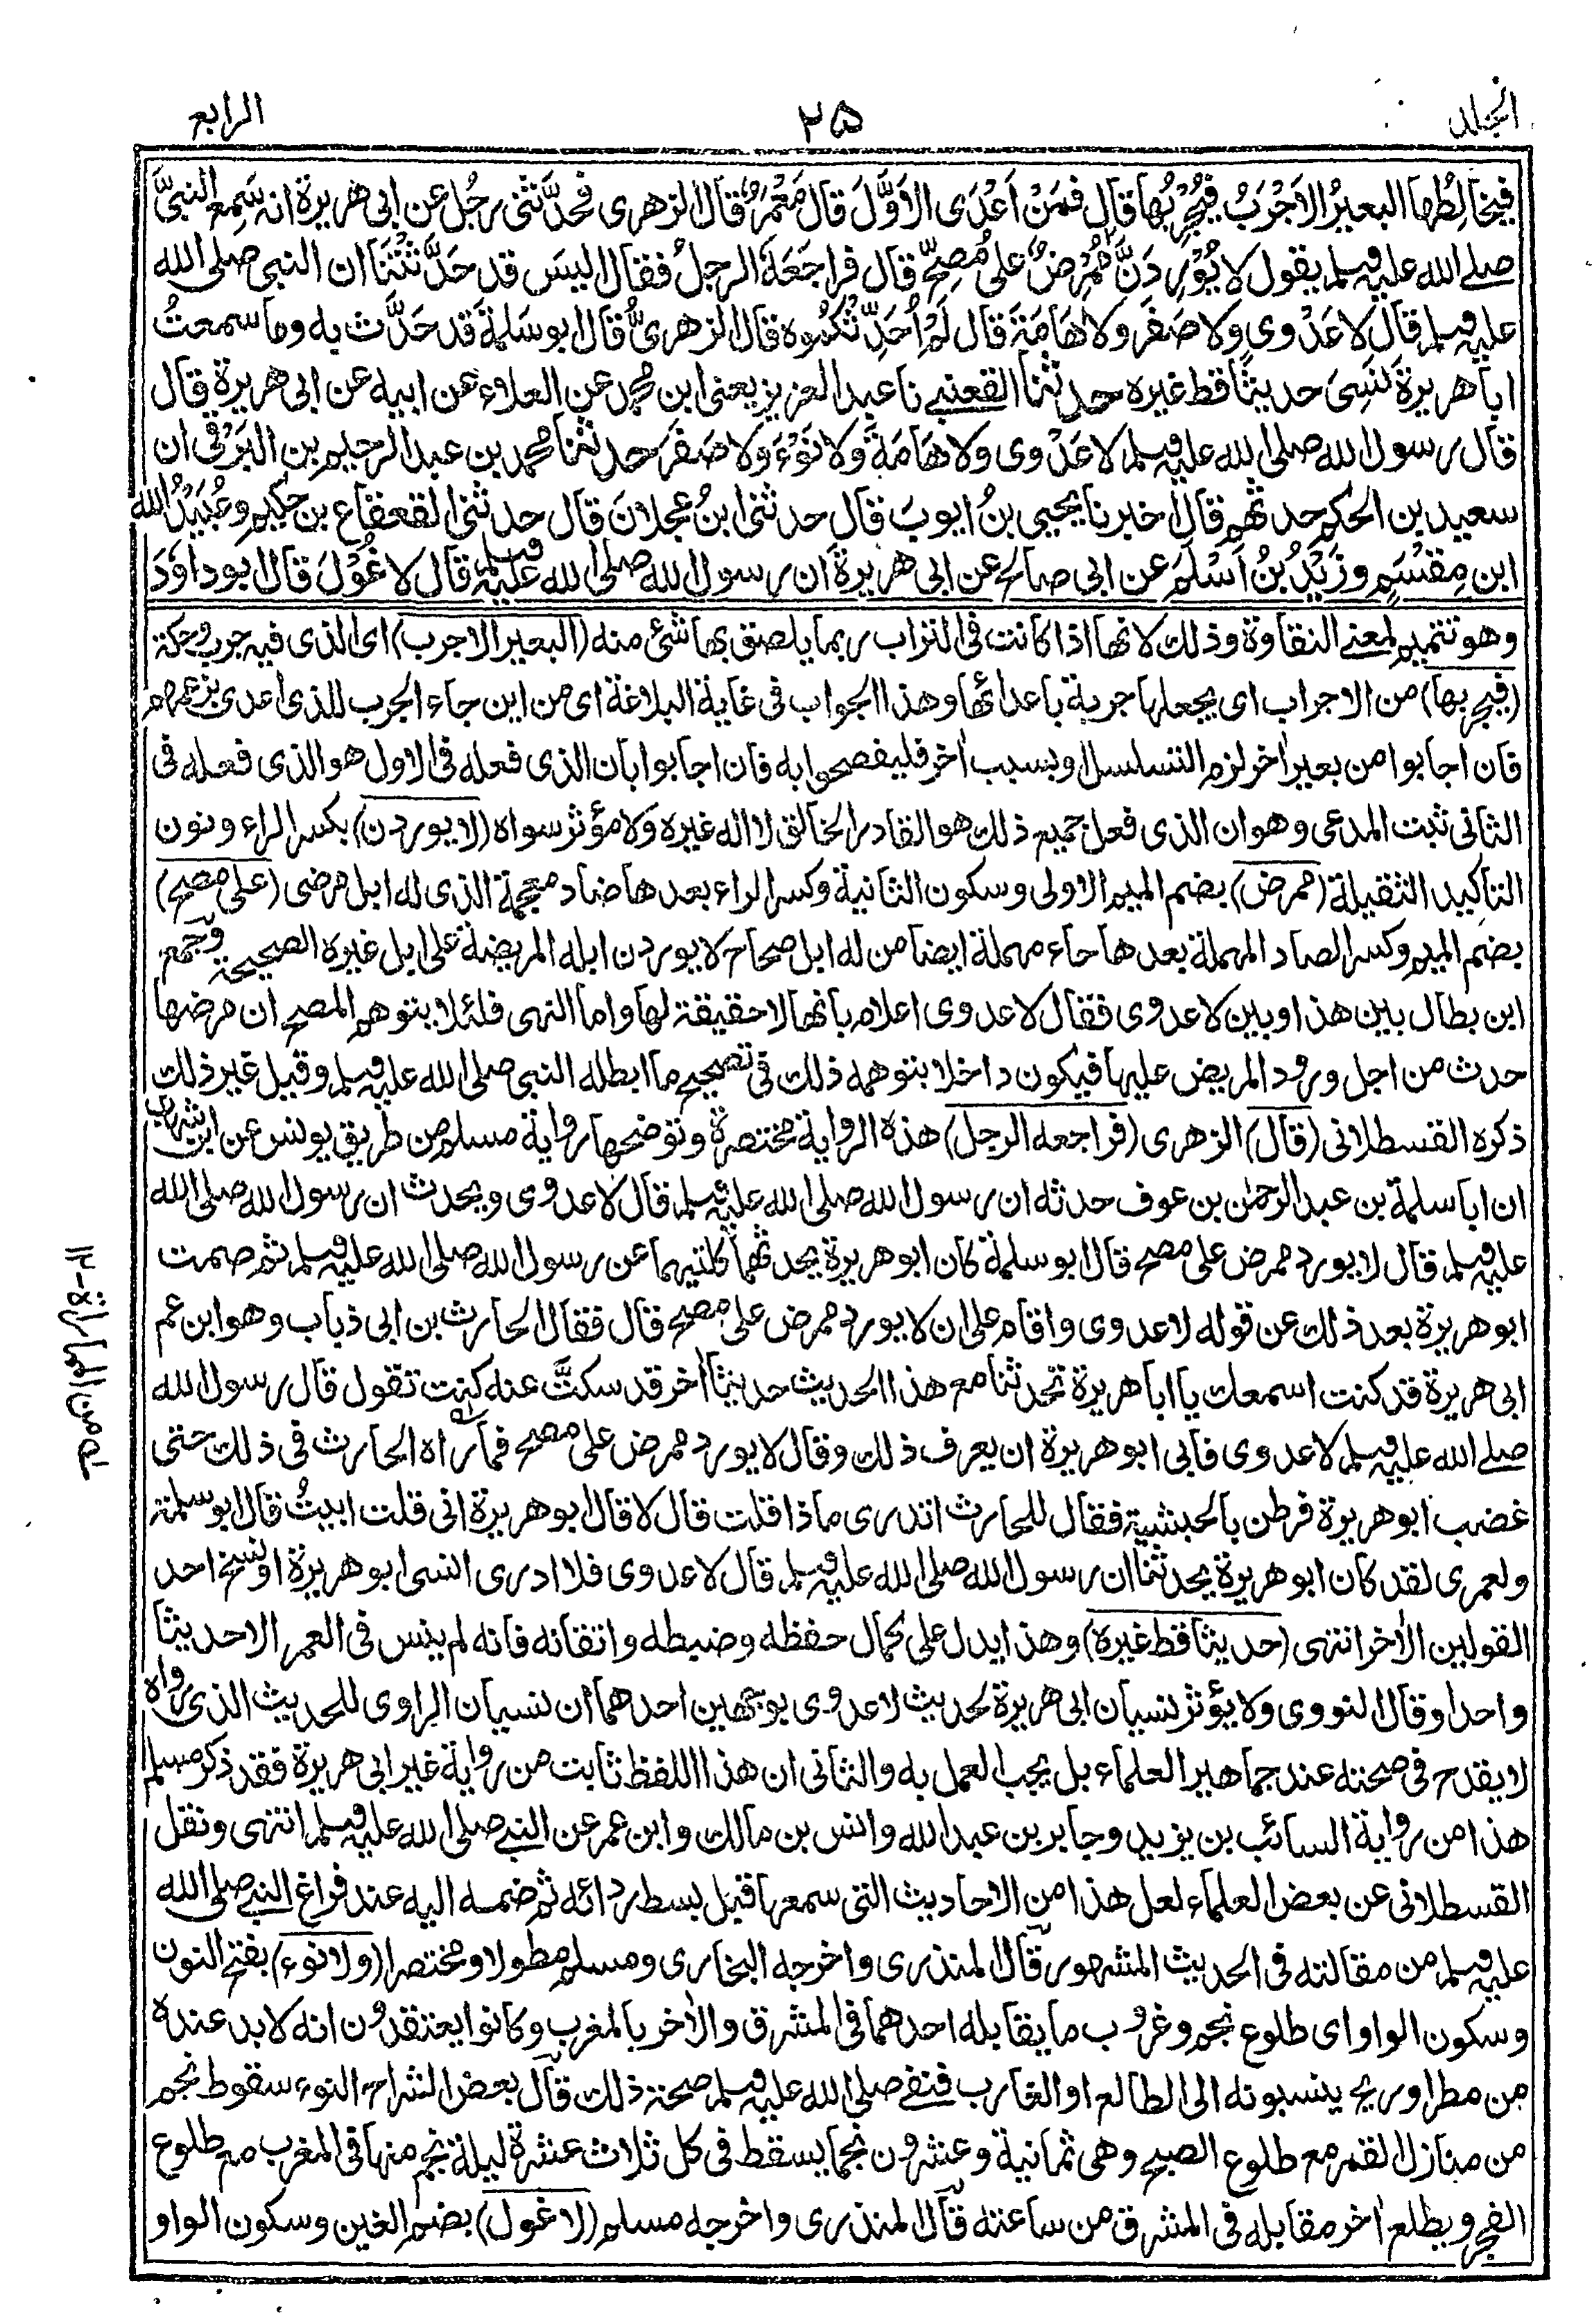 المجلد
۲۵
الرابع
فيخالِطُها البعيرُ الاَجْرَبُ فيُجْرِبُها قال فمَنْ اَعْدَى الاَوَّلَ قال مَعْمَرٌ قال الزهرى فحدَّثنى رجُل عن ابى هريرة انه سَمِع النبىَّ
صلے الله عليه وسلم يقول لا يُوْرِدَنَّ مُمْرِضٌ على مُصِحٍّ قال فراجَعَهُ الرجلُ فقال اليسَ قد حَدَّثْتَنَا ان النبى صلى الله
عليه وسلم قال لا عَدْوى ولا صَفَرَ ولا هَامَةَ قال لَمْ اُحَدِّثْكُمُوه قال الزهرىُّ قال ابو سَلمةَ قد حَدَّث به وما سمعتُ
ابا هريرةَ نَسِىَ حديثًا قط غيره حدثنا القعنبے نا عبد العزيز يعنى ابن محمد عن العلاء عن ابيه عن ابى هريرة قال
قال رسول الله صلى الله عليه وسلم لا عَدْوى ولا هَامَةَ ولا نَوْءَ ولا صَفَرَ حدثنا محمد بن عبد الرحيم بن البَرْقى ان
سعيد بن الحكم حدثهم قال اخبرنا يحيى بنُ ايوبَ قال حدثنى ابنُ عجلانَ قال حدثنى القعقاع بن حكيم وعُبَيْدُ الله
ابن مِقْسَمٍ وزَيْدُ بنُ اَسْلَمَ عن ابى صالح عن ابى هريرةَ ان رسول الله صلى الله عليه وسلم قال لا غُوْلَ قال ابو داؤدَ
وهو تتميم لمعنى النقاوة وذلك لانها اذا كانت فى التراب ربما يلصق بها شئ منه (البعير الاجرب) اى الذى فيه جرب وحكة
(فيجربها) من الاجراب اى يجعلها جربة باعدائها وهذا الجواب فى غاية البلاغة اى من اين جاء الجرب للذى اعدى بزعمهم
فان اجابوا من بعير اٰخر لزم التسلسل او بسبب اٰخر فليفصحوا به فان اجابوا بان الذى فعله فى الاول هو الذى فعله فى
الثانى ثبت المدعى وهو ان الذى فعل جميع ذلك هو القادر الخالق لا اله غيره ولا مؤثر سواه (لا يوردن) بكسر الراء ونون
التاكيد الثقيلة (ممرض) بضم الميم الاولى وسكون الثانية وكسر الراء بعدها ضاد معجمة الذى له ابل مرضى (على مصح)
بضم الميم وكسر الصاد المهملة بعدها حاء مهملة ايضا من له ابل صحاح لا يوردن ابله المريضة على ابل غيره الصحيحة وجمع
ابن بطال بين هذا وبين لا عدوى فقال لا عدوى اعلام بانها لا حقيقة لها واما النهى فلئلا يتوهم المصح ان مرضها
حدث من اجل ورود المريض عليها فيكون داخلا بتوهمه ذلك فى تصحيح ما ابطله النبى صلى الله عليه وسلم وقيل غير ذلك
ذكره القسطلانى (قال) الزهرى (فراجعه الرجل) هذه الرواية مختصرة وتوضحها رواية مسلم من طريق يونس عن ابن شهاب
ان ابا سلمة بن عبد الرحمٰن بن عوف حدثه ان رسول الله صلى الله عليه وسلم قال لا عدوى ويحدث ان رسول الله صلى الله
عليه وسلم قال لا يورد ممرض على مصح قال ابو سلمة كان ابو هريرة يحدثهما كلتيهما عن رسول الله صلى الله عليه وسلم ثم صمت
ابو هريرة بعد ذلك عن قوله لا عدوى واقام على ان لا يورد ممرض على مصح قال فقال الحارث بن ابى ذباب وهو ابن عم
ابى هريرة قد كنت اسمعك يا ابا هريرة تحدثنا مع هذا الحديث حديثا اٰخر قد سكتَّ عنه كنت تقول قال رسول الله
صلے الله عليه وسلم لا عدوى فابى ابو هريرة ان يعرف ذلك وقال لا يورد ممرض على مصح فما راٰه الحارث فى ذلك حتى
غضب ابو هريرة فرطن بالحبشية فقال للحارث اتدرى ماذا قلت قال لا قال ابو هريرة انى قلت ابيتُ قال ابو سلمة
ولعمرى لقد كان ابو هريرة يحدثنا ان رسول الله صلى الله عليه وسلم قال لا عدوى فلا ادرى انسى ابو هريرة او نسخ احد
القولين الاٰخر انتهى (حديثا قط غيره) وهذا يدل على كمال حفظه وضبطه واتقانه فانه لم ينس فى العمر الا حديثا
واحدا وقال النووى ولا يؤثر نسيان ابى هريرة لحديث لا عدوى بوجهين احدهما ان نسيان الراوى للحديث الذى رواه
لا يقدح فى صحته عند جماهير العلماء بل يجب العمل به والثانى ان هذا اللفظ ثابت من رواية غير ابى هريرة فقد ذكر مسلم
هذا من رواية السائب بن يزيد وجابر بن عبد الله وانس بن مالك وابن عمر عن النبے صلى الله عليه وسلم انتهى ونقل
القسطلانى عن بعض العلماء لعل هذا من الاحاديث التى سمعها قبل بسط ردائه ثم ضمه اليه عند فراغ النبے صلى الله
عليه وسلم من مقالته فى الحديث المشهور قال المنذرى واخرجه البخارى ومسلم مطولا ومختصرا (ولا نوء) بفتح النون
وسكون الواو اى طلوع نجم وغروب ما يقابله احدهما فى المشرق والاٰخر بالمغرب وكانوا يعتقدون انه لا بد عنده
من مطر او ريح ينسبونه الى الطالع او الغارب فنفے صلى الله عليه وسلم صحة ذلك قال بعض الشراح النوء سقوط نجم
من منازل القمر مع طلوع الصبح وهى ثمانية وعشرون نجما يسقط فى كل ثلاث عشرة ليلة نجم منها فى المغرب مع طلوع
الفجر ويطلع اٰخر مقابله فى المشرق من ساعته قال المنذرى واخرجه مسلم (لا غول) بضم الغين وسكون الواو
له من المماراة ۱۲